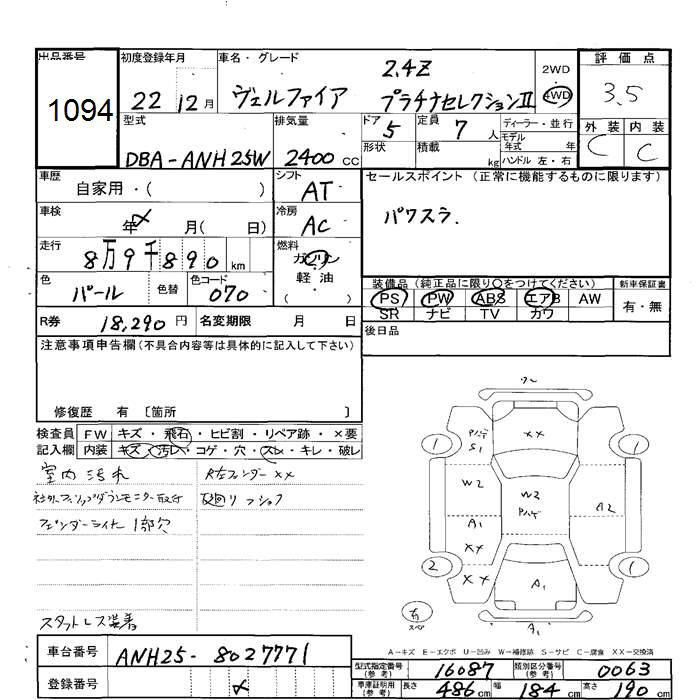 出品番号
1094
初度登録年月
22 12月
車名・グレード
2.4Z
ヴェルファイア プラチナセレクションⅡ
2WD
4WD
評価点
3.5
外装 内装
C C
型式
DBA-ANH25W
排気量
2400 cc
ドア 5
形状
定員 7 人
積載 kg
ディーラー・並行
モデル年式 年
ハンドル 左・右
車歴
自家用・( )
シフト
AT
セールスポイント(正常に機能するものに限ります)
パワスラ.
車検
年 月( 日)
冷房
AC
走行
8万9千890 km
燃料
ガソリン
軽油
( )
色
パール
色替
色コード
070
装備品(純正品に限り○をつけてください)
新車保証書
PS PW ABS エアB AW
SR ナビ TV カワ
有・無
R券
18,290円
名変期限 月 日
後日品
注意事項申告欄(不具合内容等は具体的に記入して下さい)
修復歴 有 〔箇所 〕
検査員
記入欄
FW キズ・飛石・ヒビ割・リペア跡・×要
内装 キズ・汚レ・コゲ・穴・スレ・キレ・破レ
室内汚れ
R左フェンダーXX
社外フリップダウンモニター取付
フェンダーライナー1部欠
スタットレス装着
ワレ
XX
Pハゲ
S1
1
1
W2
W2
Pハゲ
A2
A1
XX
XX
2
1
A1
右
スペア
A1
A-キズ E-エクボ U-凹み W-補修跡 S-サビ C-腐食 XX-交換済
車台番号
ANH25-8027771
登録番号
型式指定番号
(参考)
16087
類別区分番号
(参考)
0063
車庫証明用
(参考)
長さ 486cm
幅 184cm
高さ 190cm